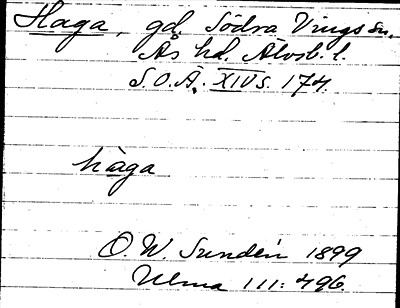 Haga, gd. Södra Vings sn,
Ås hd. Älvsb. l.
S.O.Ä. XIV s. 174.
hàga
O. W. Sundén 1899
Ulma 111: 496.